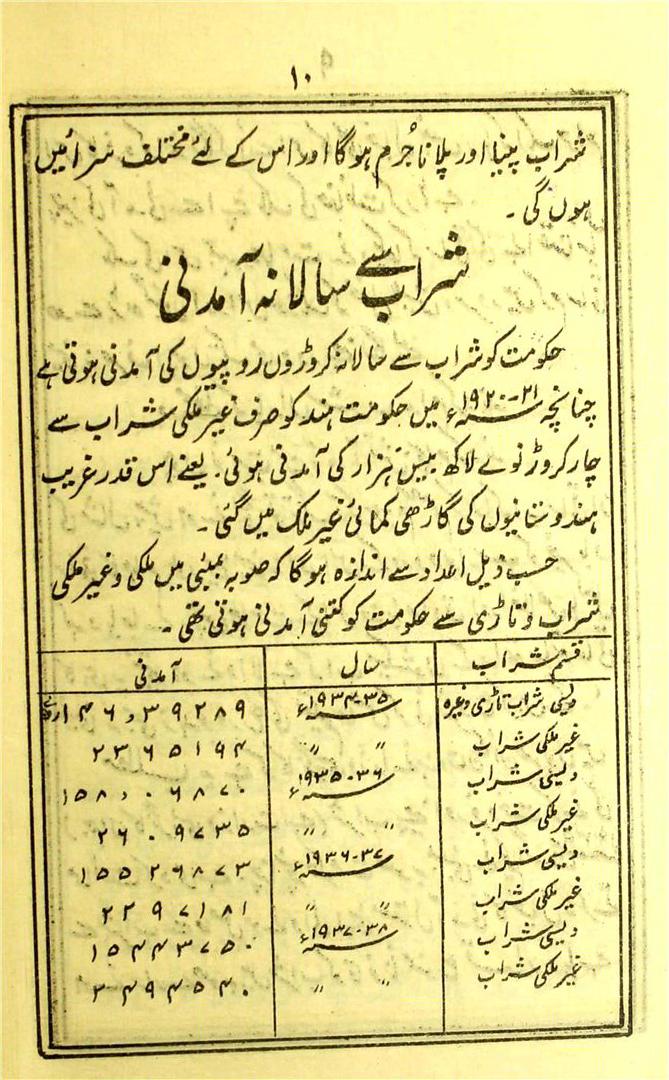 ۱۰
شراب پینا اور پلانا جُرم ہوگا اور اس کے لئے مختلف سزائیں
ہوں گی ۔
شراب سے سالانہ آمدنی
حکومت کو شراب سے سالانہ کروڑوں روپیوں کی آمدنی ہوتی ہے
چنانچہ ۲۱-۱۹۲۰ء میں حکومت ہند کو صرف غیر ملکی شراب سے
چار کروڑ نوے لاکھ بیس ہزار کی آمدنی ہوئی۔ یعنے اس قدر غریب
ہندوستانیوں کی گاڑھی کمائی غیر ملک میں گئی ۔
حسب ذیل اعداد سے اندازہ ہوگا کہ صوبہ بمبئی میں ملکی و غیر ملکی
شراب و تاڑی سے حکومت کو کتنی آمدنی ہوتی تھی ۔
قسم شراب سال آمدنی
دیسی شراب تاڑی وغیرہ ۳۵-۱۹۳۴ء ۱۴۶۰۳۹۲۸۹
غیر ملکی شراب 〃 〃 ۲۳۶۵۱۹۴
دیسی شراب ۳۶-۱۹۳۵ء ۱۵۸۰۰۶۸۷۰
غیر ملکی شراب 〃 〃 ۲۶۰۹۷۳۵
دیسی شراب ۳۷-۱۹۳۶ء ۱۵۵۲۶۸۷۳
غیر ملکی شراب 〃 〃 ۲۲۹۷۱۸۱
دیسی شراب ۳۸-۱۹۳۷ء ۱۵۴۴۳۷۵۰
غیر ملکی شراب 〃 〃 ۳۴۹۴۵۴۰